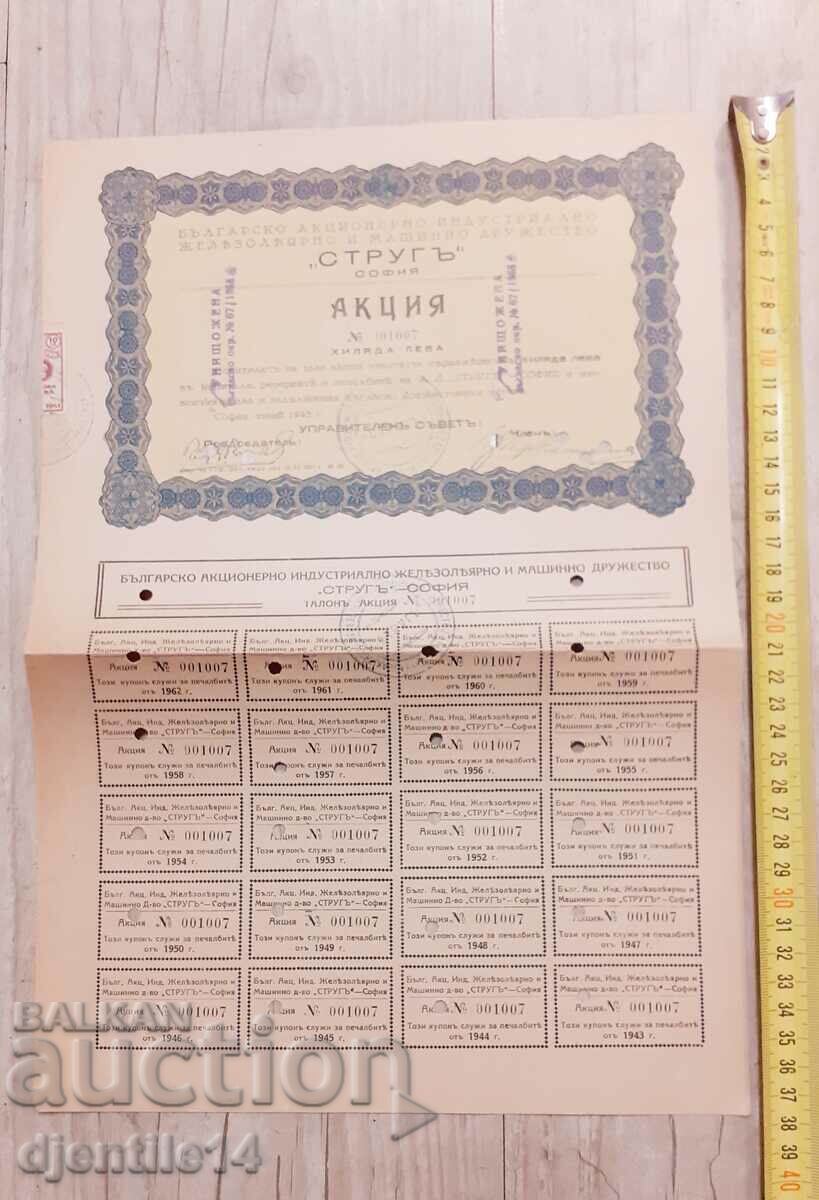 БЪЛГАРСКО АКЦИОНЕРНО ИНДУСТРИАЛНО
ЖЕЛѢЗОЛѢЯРНО И МАШИННО ДРУЖЕСТВО
„СТРУГЪ“
СОФИЯ
АКЦИЯ
№ 001007
ХИЛЯДА ЛЕВА
УНИЩОЖЕНА
УНИЩОЖЕНА
хиляда лева
София
УПРАВИТЕЛЕНЪ СЪВЕТЪ:
Председатель:
Членъ:
БЪЛГАРСКО АКЦИОНЕРНО ИНДУСТРИАЛНО ЖЕЛѢЗОЛѢЯРНО И МАШИННО ДРУЖЕСТВО
„СТРУГЪ“—СОФИЯ
ТАЛОНЪ АКЦИЯ № 001007
Бълг. Акц. Инд. Желѣзолѣярно и Бълг. Акц. Инд. Желѣзолѣярно и Бълг. Акц. Инд. Желѣзолѣярно и Бълг. Акц. Инд. Желѣзолѣярно и
Машинно д-во „СТРУГЪ“—София Машинно д-во „СТРУГЪ“—София Машинно д-во „СТРУГЪ“—София Машинно д-во „СТРУГЪ“—София
Акция № 001007 Акция № 001007 Акция № 001007 Акция № 001007
Този купонъ служи за печалбитѣ Този купонъ служи за печалбитѣ Този купонъ служи за печалбитѣ Този купонъ служи за печалбитѣ
отъ 1962 г. отъ 1961 г. отъ 1960 г. отъ 1959 г.
Бълг. Акц. Инд. Желѣзолѣярно и Бълг. Акц. Инд. Желѣзолѣярно и Бълг. Акц. Инд. Желѣзолѣярно и Бълг. Акц. Инд. Желѣзолѣярно и
Машинно д-во „СТРУГЪ“—София Машинно д-во „СТРУГЪ“—София Машинно д-во „СТРУГЪ“—София Машинно д-во „СТРУГЪ“—София
Акция № 001007 Акция № 001007 Акция № 001007 Акция № 001007
Този купонъ служи за печалбитѣ Този купонъ служи за печалбитѣ Този купонъ служи за печалбитѣ Този купонъ служи за печалбитѣ
отъ 1958 г. отъ 1957 г. отъ 1956 г. отъ 1955 г.
Бълг. Акц. Инд. Желѣзолѣярно и Бълг. Акц. Инд. Желѣзолѣярно и Бълг. Акц. Инд. Желѣзолѣярно и Бълг. Акц. Инд. Желѣзолѣярно и
Машинно д-во „СТРУГЪ“—София Машинно д-во „СТРУГЪ“—София Машинно д-во „СТРУГЪ“—София Машинно д-во „СТРУГЪ“—София
Акция № 001007 Акция № 001007 Акция № 001007 Акция № 001007
Този купонъ служи за печалбитѣ Този купонъ служи за печалбитѣ Този купонъ служи за печалбитѣ Този купонъ служи за печалбитѣ
отъ 1954 г. отъ 1953 г. отъ 1952 г. отъ 1951 г.
Бълг. Акц. Инд. Желѣзолѣярно и Бълг. Акц. Инд. Желѣзолѣярно и Бълг. Акц. Инд. Желѣзолѣярно и Бълг. Акц. Инд. Желѣзолѣярно и
Машинно Д-во „СТРУГЪ“—София Машинно Д-во „СТРУГЪ“—София Машинно Д-во „СТРУГЪ“—София Машинно Д-во „СТРУГЪ“—София
Акция № 001007 Акция № 001007 Акция № 001007 Акция № 001007
Този купонъ служи за печалбитѣ Този купонъ служи за печалбитѣ Този купонъ служи за печалбитѣ Този купонъ служи за печалбитѣ
отъ 1950 г. отъ 1949 г. отъ 1948 г. отъ 1947 г.
Бълг. Акц. Инд. Желѣзолѣярно и Бълг. Акц. Инд. Желѣзолѣярно и Бълг. Акц. Инд. Желѣзолѣярно и Бълг. Акц. Инд. Желѣзолѣярно и
Машинно д-во „СТРУГЪ“—София Машинно д-во „СТРУГЪ“—София Машинно д-во „СТРУГЪ“—София Машинно д-во „СТРУГЪ“—София
Акция № 001007 Акция № 001007 Акция № 001007 Акция № 001007
Този купонъ служи за печалбитѣ Този купонъ служи за печалбитѣ Този купонъ служи за печалбитѣ Този купонъ служи за печалбитѣ
отъ 1946 г. отъ 1945 г. отъ 1944 г. отъ 1943 г.
BALKAN
auction
djentile14
2
3
4
5
6
7
8
9
10
11
12
13
14
15
16
17
18
19
20
21
22
23
24
25
26
27
28
29
30
31
32
33
34
35
36
37
38
39
40